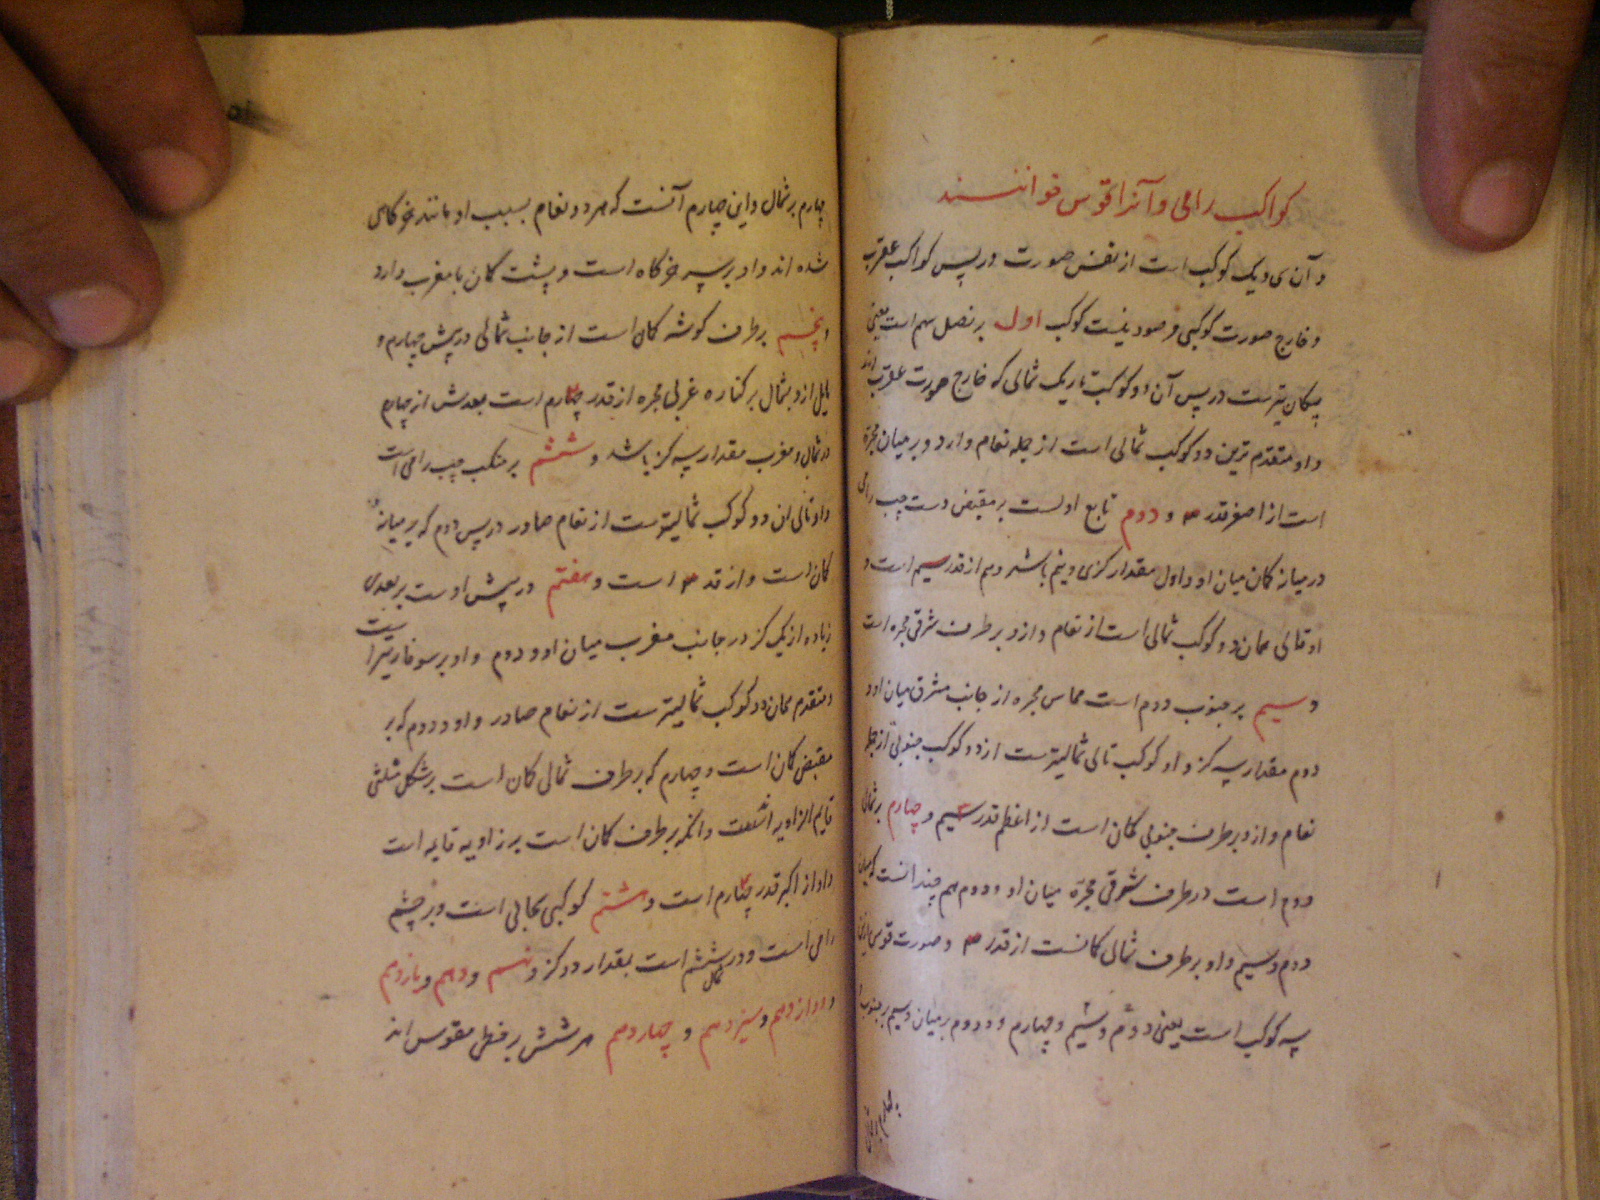 کواکب رامی و آنرا قوس خوانند
و آن سی و یک کوکب است از نفس صورت در پس کواکب عقرب
و خارج صورت کوکبی مرصود نیست کوکب اول بر نصل سهم است یعنی
پیکان تیرست در پس آن دو کوکب تاریک شمالی که خارج صورت عقرب اند
و او متقدم ترین دو کوکب شمالی است از جمله نعام وارد و بر میان مجره
است از اصغر قدر ۳ و دوم تابع اولست بر مقبض دست چپ رامی
در میانه کمان میان او و اول مقدار گزی و نیم باشد و هم از قدر سیم است و
او تالی همان دو کوکب شمالی است از نعام وارد و بر طرف شرقی مجره است
و سیم بر جنوب دوم است مماس مجره از جانب مشرق میان او و
دوم مقدار سه گز و او کوکب تالی شمالیترست از دو کوکب جنوبی از جمله
نعام وارد و بر طرف جنوبی کمان است از اعظم قدر سیم و چهارم بر شمال
دوم است در طرف شرقی مجره میان او و دوم هم چندانست که میان
دوم و سیم و او بر طرف شمالی کمانست از قدر ۳ و صورت قوس بدین
سه کوکب است یعنی دوم و سیم و چهارم و دوم بر میان و سیم بر جنوب
و چهارم بر شمال
چهارم بر شمال و این چهارم آنست که هر دو نعام بسبب او مانند خرگاهی
شده اند و او بر سر خرگاه است و پشت کمان با مغرب دارد
و پنجم بر طرف گوشه کمان است از جانب شمالی در پیش چهارم و
مایل ازو بشمال بر کناره غربی مجره از قدر چهارم است بعدش از چهارم
در شمال و مغرب مقدار سه گز باشد و ششم بر منکب چپ رامی است
و او تالی ان دو کوکب شمالیترست از نعام صادر در پس دوم که بر میانه
کمان است و از قدر ۳ است و هفتم در پیش اوست بر بعدی
زیاده از یک گز در جانب مغرب میان او و دوم و او بر سوفار تیر است
و متقدم همان دو کوکب شمالیترست از نعام صادر و او و دوم که بر
مقبض کمان است و چهارم که بر طرف شمالی کمان است بر شکل مثلثی
قایم الزاویه است و انکه بر طرف کمان است بر زاویه قایمه است
و او از اکبر قدر چهارم است و هشتم کوکبی سحابی است و بر چشم
رامی است و در شمال ششم است بمقدار دو گز و نهم و دهم و یازدهم
و دوازدهم و سیزدهم و چهاردهم هر شش بر خطی مقوس اند